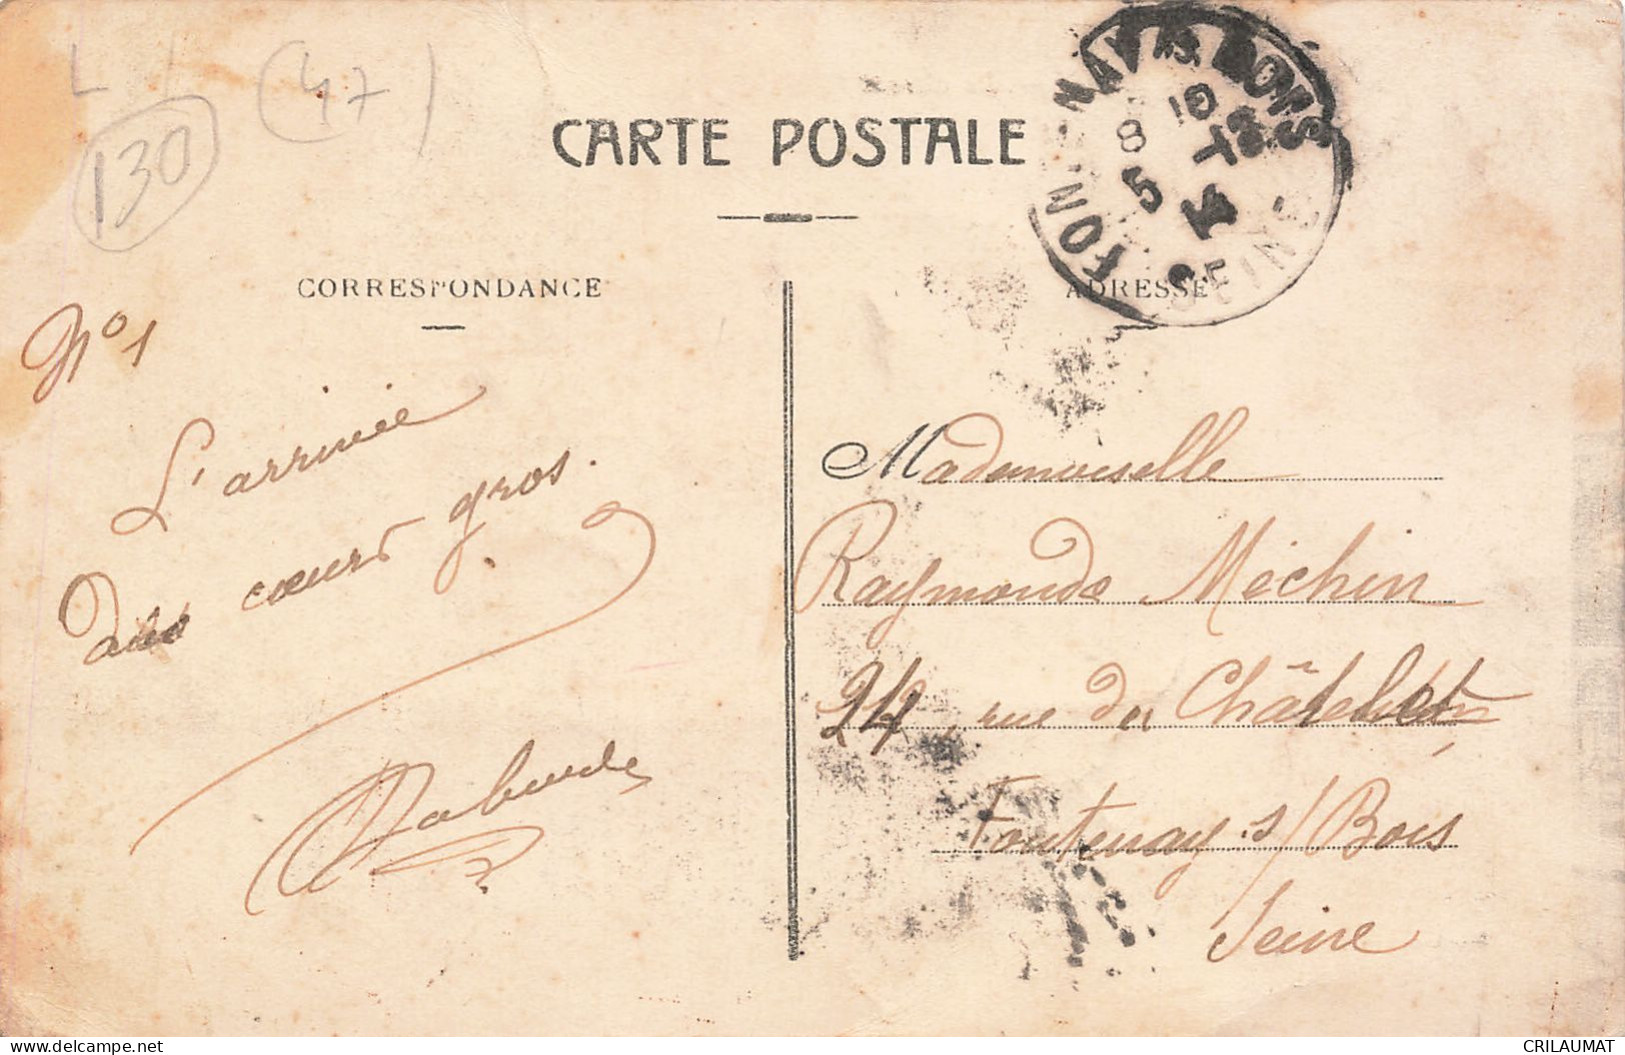 L
(47)
130
CARTE POSTALE
FONTENAY-S-BOIS
8 10
5
SEINE
CORRESPONDANCE
ADRESSE
N° 1
L'arrivée
des cœurs gros.
Mademoiselle
Raymonde Méchin
24, rue du Châtelet
Fontenay s/ Bois
Seine
delcampe.net
CRILAUMAT